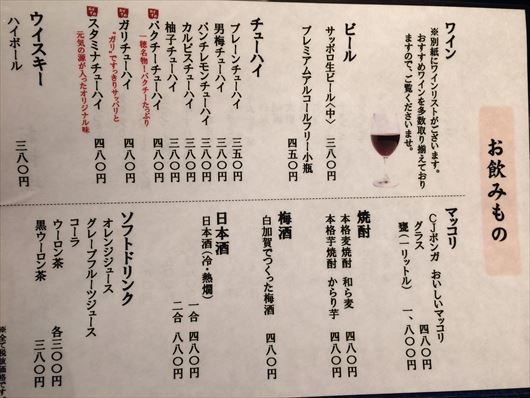 お飲みもの
ワイン
※別紙にワインリストがございます。
おすすめワインを多数取り揃えており
ますので、ご覧くださいませ。
ビール
サッポロ生ビール〈中〉 三八〇円
プレミアムアルコールフリー小瓶 四五〇円
チューハイ
プレーンチューハイ 三五〇円
男梅チューハイ 三八〇円
パンチレモンチューハイ 三八〇円
カルピスチューハイ 三八〇円
柚子チューハイ 三八〇円
パクチーチューハイ 四八〇円
一穂名物！パクチーたっぷり
ガリチューハイ 四八〇円
“ガリ”ですっきりサッパリと
スタミナチューハイ 四八〇円
元気の源が入ったオリジナル味
ウイスキー
ハイボール 三八〇円
マッコリ
CJボンガ おいしいマッコリ
グラス 四八〇円
甕（一リットル） 一、八〇〇円
焼酎
本格麦焼酎 和ら麦 四八〇円
本格芋焼酎 からり芋 四八〇円
梅酒
白加賀でつくった梅酒 四八〇円
日本酒
日本酒（冷・熱燗） 一合 四八〇円
二合 八八〇円
ソフトドリンク
オレンジジュース
グレープフルーツジュース
コーラ
ウーロン茶 各三〇〇円
黒ウーロン茶 三八〇円
※全て税抜価格です。